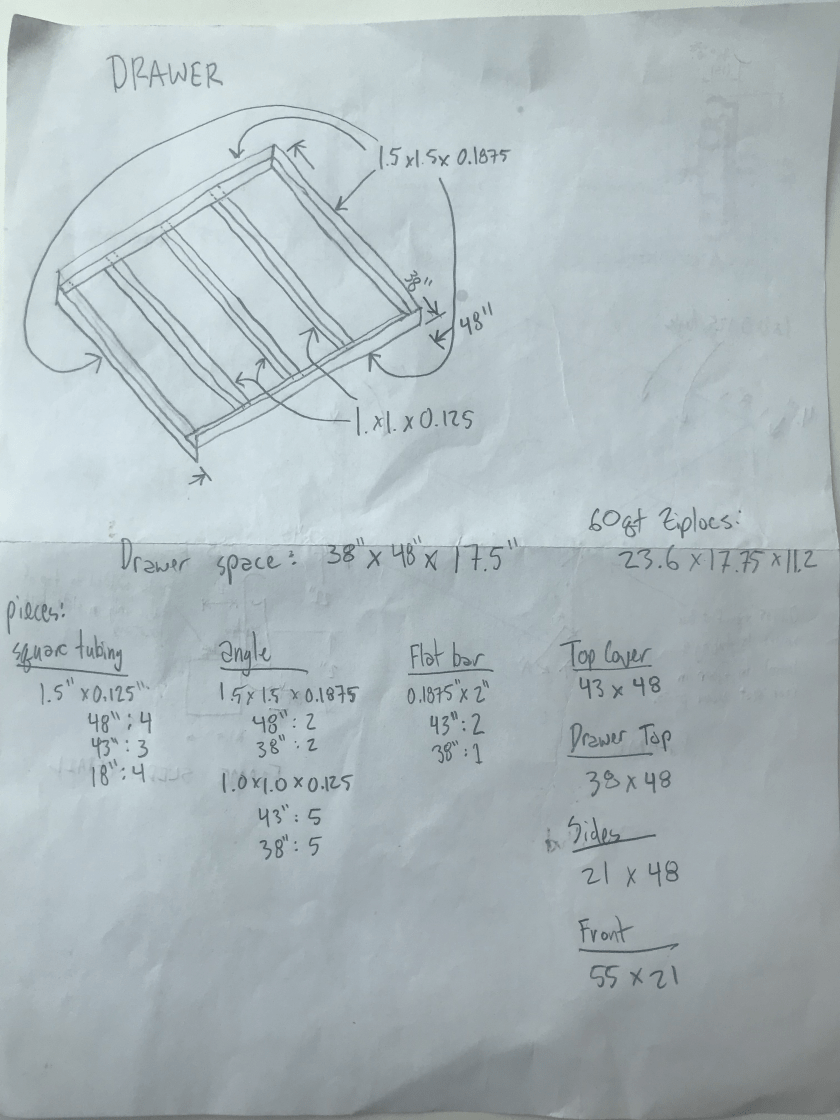 DRAWER
1.5 x1.5 x 0.1875
38"
48"
1. x1. x 0.125
60qt Ziplocs:
Drawer space: 38" x 48" x 17.5"
23.6 x 17.75 x 11.2
pieces:
square tubing
1.5" x 0.125"
48" : 4
43" : 3
18" : 4
angle
1.5 x 1.5 x 0.1875
48" : 2
38" : 2
1.0 x 1.0 x 0.125
43" : 5
38" : 5
Flat bar
0.1875" x 2"
43" : 2
38" : 1
Top Cover
43 x 48
Drawer Top
38 x 48
Sides
21 x 48
Front
55 x 21